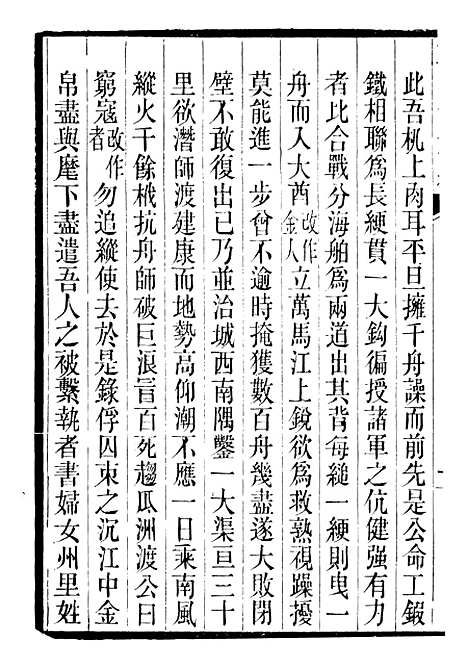 此吾机上肉耳平旦擁千舟譟而前先是公命工鍛
鐵相聯爲長綆貫一大鈎徧授諸軍之伉健強有力
者比合戰分海舶爲兩道出其背每縋一綆則曳一
舟而入大酋改作金人立萬馬江上銳欲爲救熟視躁擾
莫能進一步曾不逾時掩獲數百舟幾盡遂大敗閉
壁不敢復出已乃並治城西南隅鑿一大渠亘三十
里欲潛師渡建康而地勢高仰潮不應一日乘南風
縱火千餘檝抗舟師破巨浪冒百死趨瓜洲渡公曰
窮寇改作者勿追縱使去於是錄俘囚束之沉江中金
帛盡與麾下盡遣吾人之被繫執者書婦女州里姓